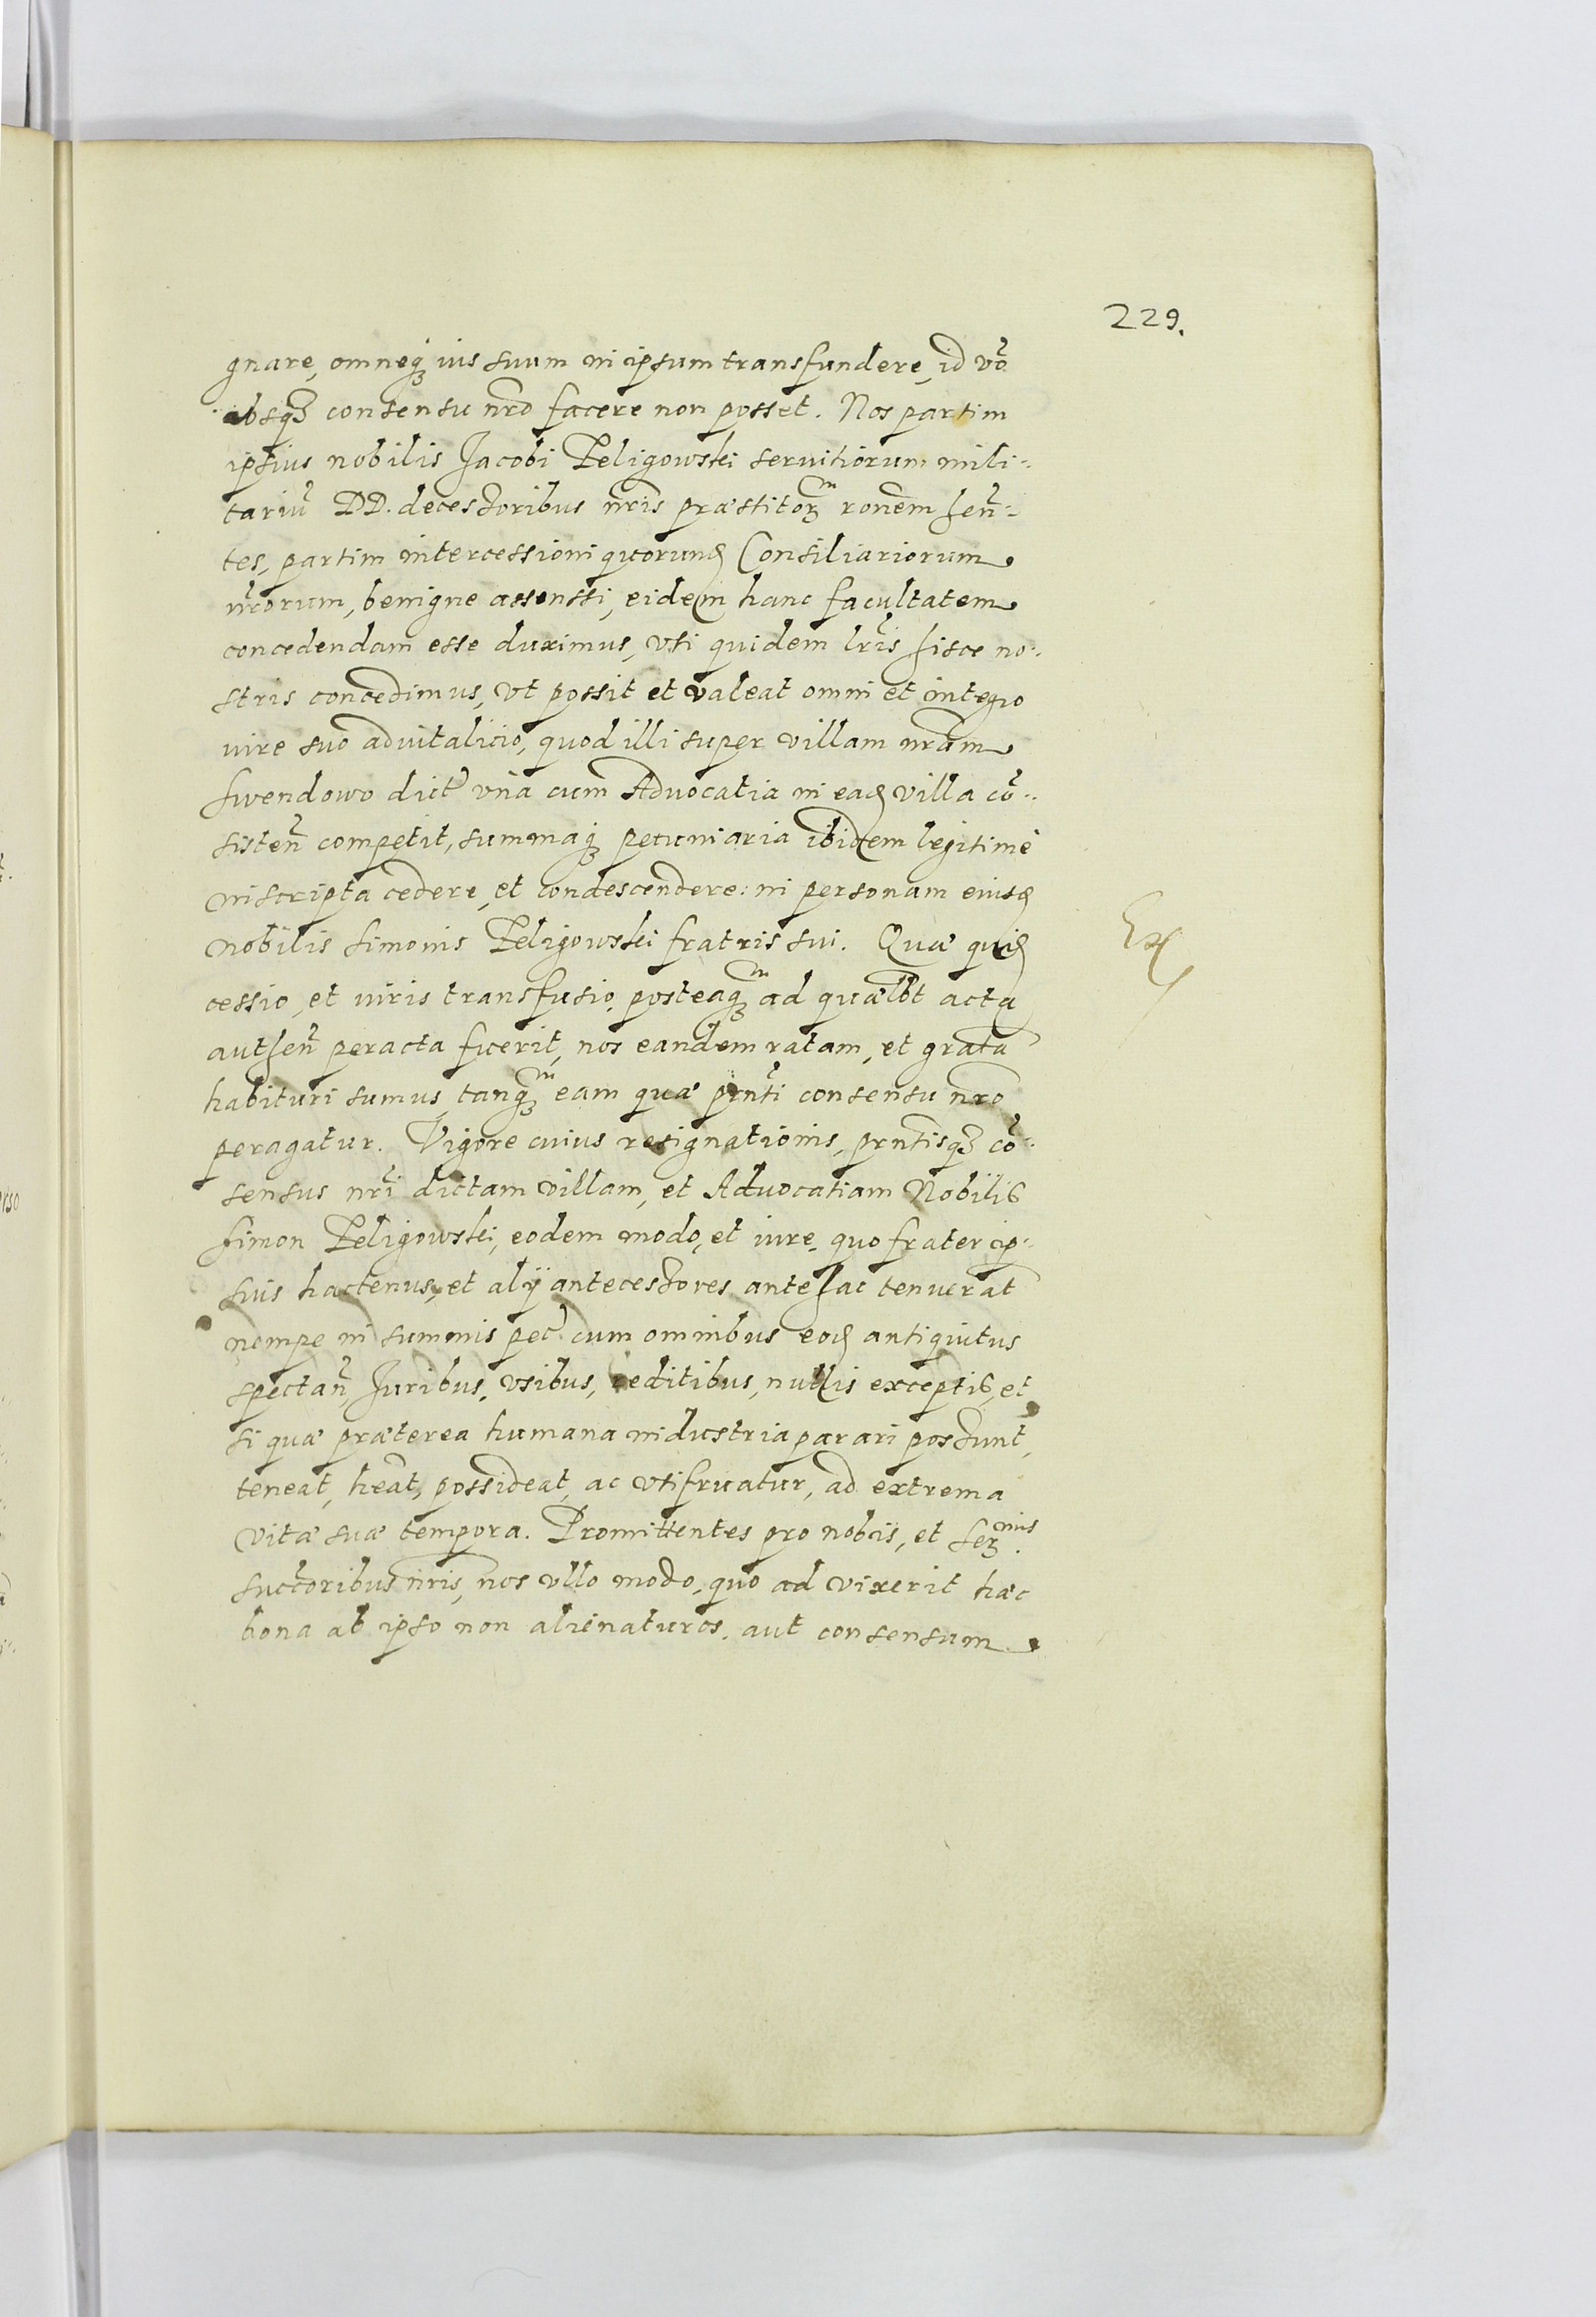 229.
gnare, omneq; ius suum in ipsum transfundere, id vo
absq; consensu nro facere non posset. Nos partim
ipsius nobilis Jacobi Peligowski seruitiorum mili-
tariu DD. decessoribus nris præstitor(m) ronem hen-
tes, partim intercessioni quorund Consiliariorum
nrorum, benigne assenssi, eidem hanc facultatem
concedendam esse duximus, vti quidem lris hisce no-
stris concedimus, vt possit et valeat omni et integro
iure suo aduitalicio, quod illi super villam nram
Swendowo dict vna cum Aduocatia in ead villa co-
sisten competit, summaq; pecuniaria ibidem legitime
inscripta cedere, et condescendere: in personam eiusd
nobilis Simonis Peligowski fratris sui. Quæ quid
Ex
cessio, et iuris transfusio, posteaq;m ad quælbt acta
authen peracta fuerit, nos eandem ratam, et grata
habituri sumus, tanq;m eam quæ prnti consensu nro
peragatur. Vigore cuius resignationis, prntisq; co-
sensus nri dictam villam, et Aduocatiam Nobilis
Simon Peligowski, eodem modo, et iure, quo frater ip-
sius hactenus, et alÿ antecessores antehac tenuerat
nempe in summis pec. cum omnibus eod antiquitus
spectan, Juribus, vsibus, reditibus, nullis exceptis, et
si quæ præterea humana industria parari possunt,
teneat, heat, possideat, ac vtifruatur, ad extrema
vitæ suæ tempora. Promittentes pro nobis, et Ser.mis
succoribus nris, nos vllo modo, quo ad vixerit hæc
bona ab ipso non alienaturos, aut consensum